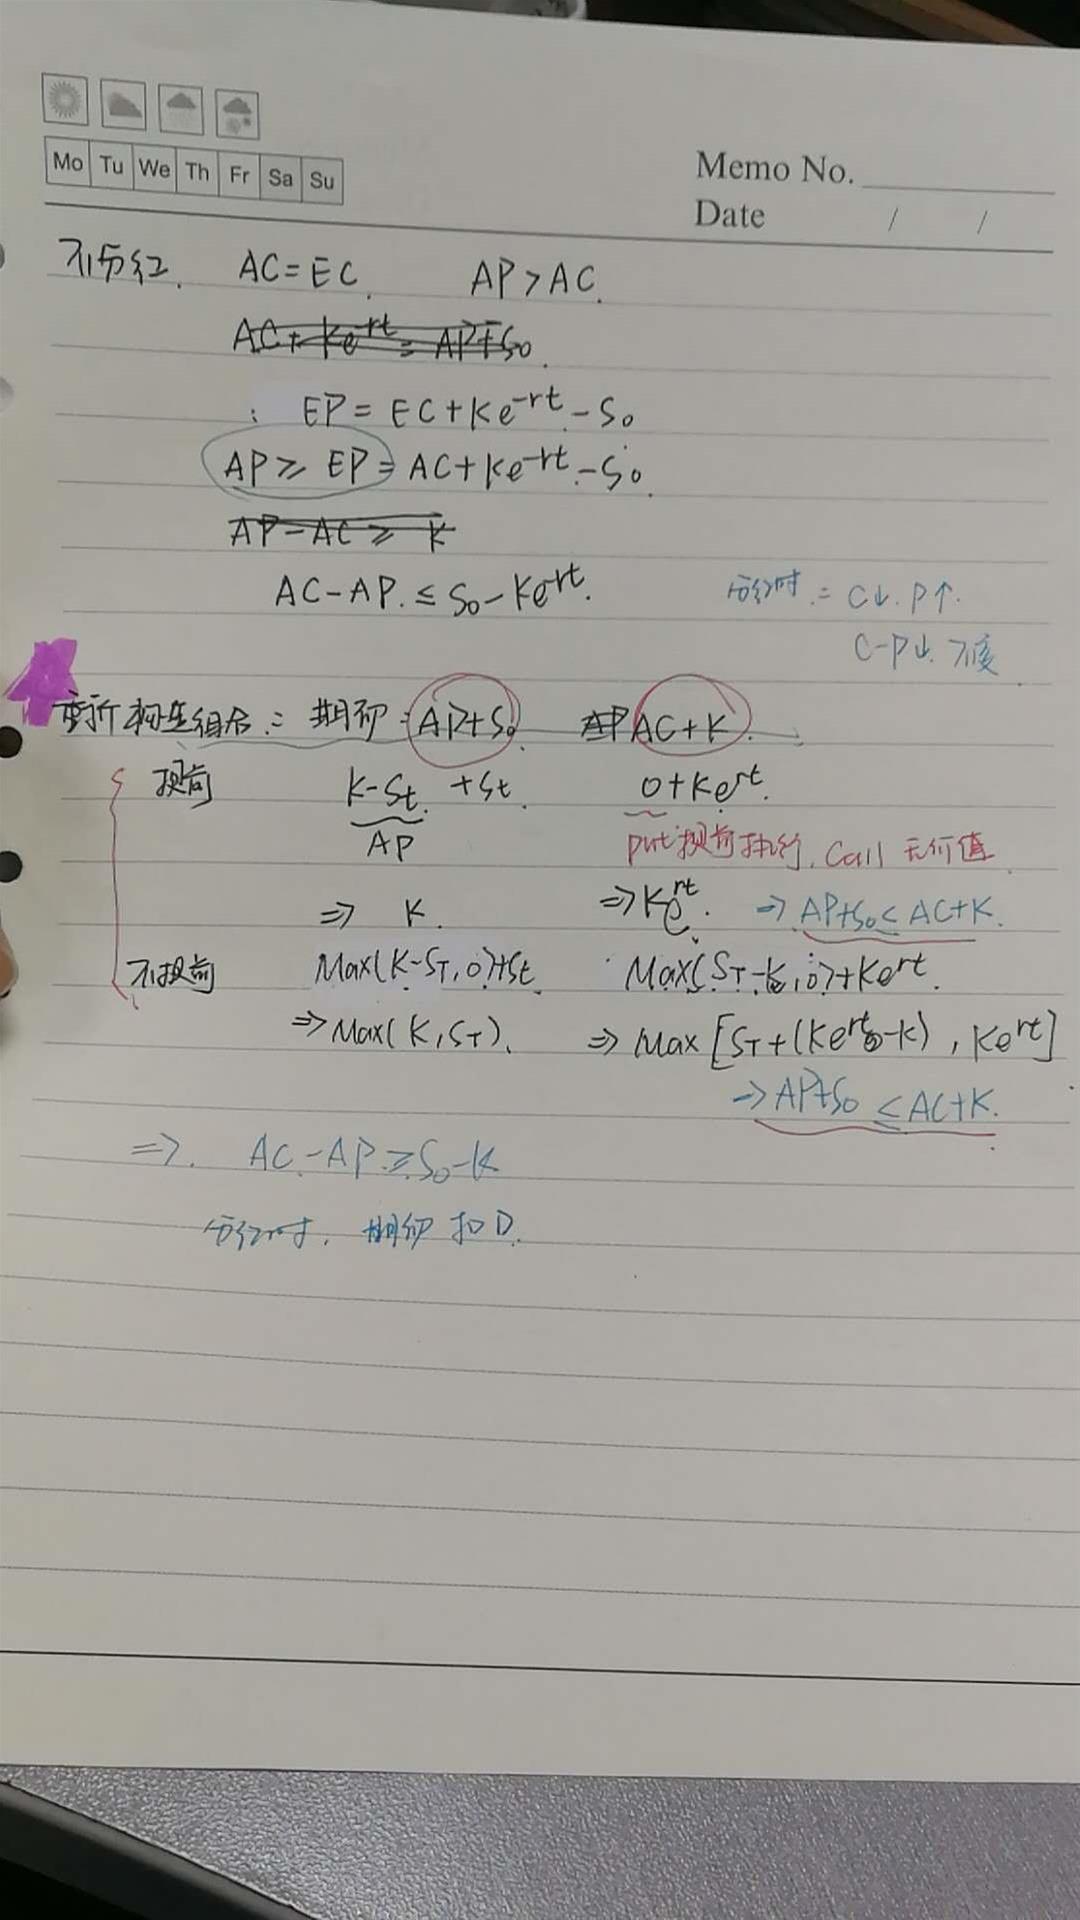 Mo Tu We Th Fr Sa Su
Memo No.
Date / /
不分红. AC=EC. AP>AC.
AC+Ke^-rt = AP+S₀.
EP = EC+Ke^-rt-S₀
AP≥EP = AC+Ke^-rt-S₀.
AP-AC≥K
AC-AP.≤S₀-Ke^-rt.
分红时.= C↓.P↑.
C-P↓.不变
重新构建组合.: 期初: AP+S₀ AP AC+K.
提前 K-St. +St. 0+Ke^rt.
AP put提前执行.Call无价值.
⇒ K. ⇒Ke^rt. ⇒ AP+S₀≤AC+K.
不提前 Max(K-S_T,0)+St. Max(S_T-K,0)+Ke^rt.
⇒Max(K,S_T). ⇒ Max[S_T+(Ke^rt-K),Ke^rt]
⇒AP+S₀≤AC+K.
⇒. AC-AP≥S₀-K
分红时.期初扣D.